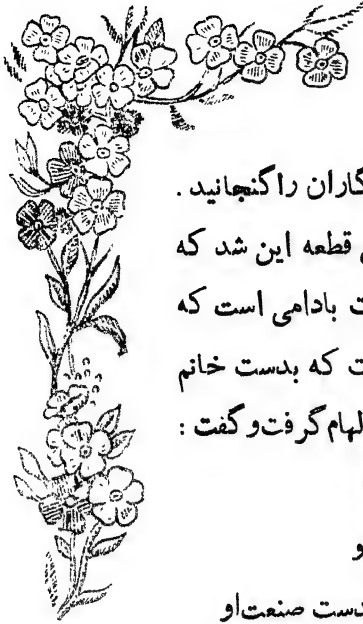 گاران را گنجانید .
قطعه این شد که
بادامی است که
ت که بدست خانم
لهام گرفت و گفت :
و
ست صنعت او